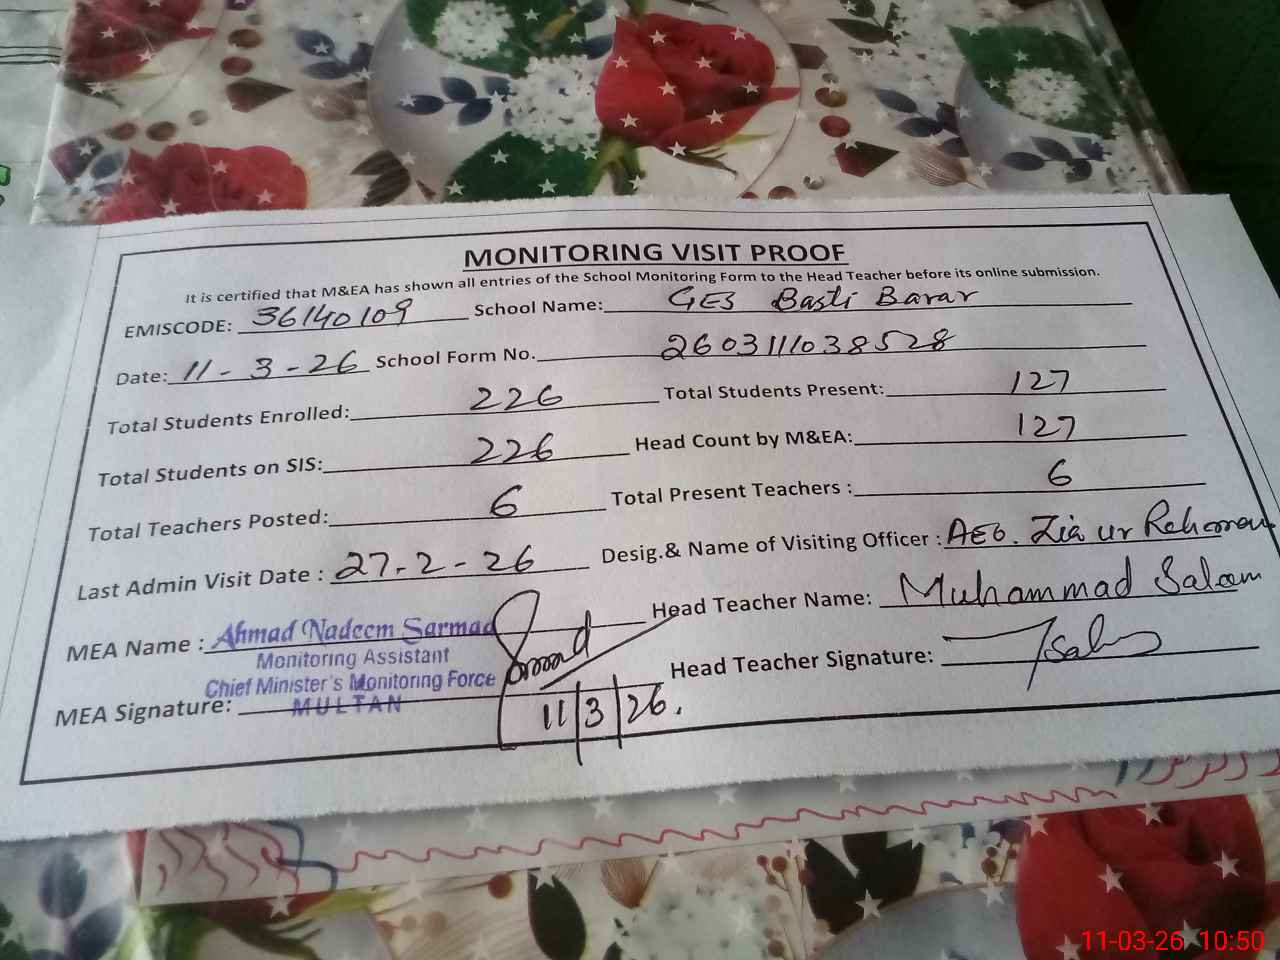 MONITORING VISIT PROOF
It is certified that M&EA has shown all entries of the School Monitoring Form to the Head Teacher before its online submission.
EMISCODE: 36140109 School Name: GES Basti Barar
Date: 11-3-26 School Form No. 2603111038528
Total Students Enrolled: 226 Total Students Present: 127
Total Students on SIS: 226 Head Count by M&EA: 127
Total Teachers Posted: 6 Total Present Teachers : 6
Last Admin Visit Date : 27-2-26 Desig.& Name of Visiting Officer : AEO. Zia ur Rehman
MEA Name : Ahmad Nadeem Sarmad Head Teacher Name: Muhammad Saleem
Monitoring Assistant
Chief Minister's Monitoring Force
MEA Signature: MULTAN Head Teacher Signature:
11/3/26.
11-03-26 10:50